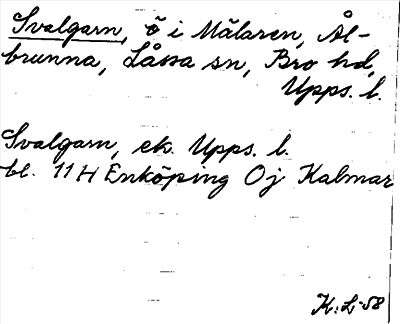 Svalgarn, ö i Mälaren, Ål-
brunna, Låssa sn, Bro hd,
Upps. l.
Svalgarn, ek. Upps. l.
bl. 11H Enköping Oj Kalmar
K:L-58